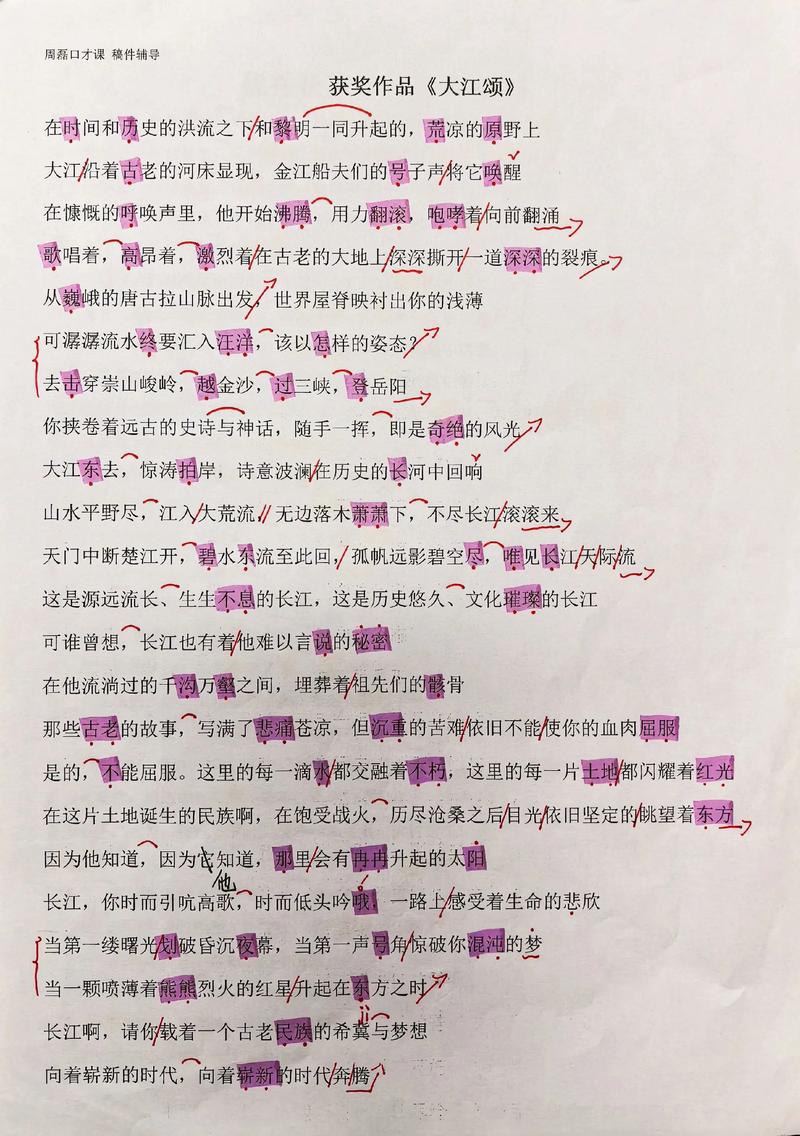 周磊口才课 稿件辅导
获奖作品《大江颂》
在时间和历史的洪流之下和黎明一同升起的，荒凉的原野上
大江沿着古老的河床显现，金江船夫们的号子声将它唤醒
在慷慨的呼唤声里，他开始沸腾，用力翻滚，咆哮着向前翻涌
歌唱着，高昂着，激烈着在古老的大地上深深撕开一道深深的裂痕。
从巍峨的唐古拉山脉出发，世界屋脊映衬出你的浅薄
可潺潺流水终要汇入汪洋，该以怎样的姿态？
去击穿崇山峻岭，越金沙，过三峡，登岳阳
你挟卷着远古的史诗与神话，随手一挥，即是奇绝的风光
大江东去，惊涛拍岸，诗意波澜在历史的长河中回响
山水平野尽，江入大荒流，无边落木萧萧下，不尽长江滚滚来
天门中断楚江开，碧水东流至此回，孤帆远影碧空尽，唯见长江天际流
这是源远流长、生生不息的长江，这是历史悠久、文化璀璨的长江
可谁曾想，长江也有着他难以言说的秘密
在他流淌过的千沟万壑之间，埋葬着祖先们的骸骨
那些古老的故事，写满了悲痛苍凉，但沉重的苦难依旧不能使你的血肉屈服
是的，不能屈服。这里的每一滴水都交融着不朽，这里的每一片土地都闪耀着红光
在这片土地诞生的民族啊，在饱受战火，历尽沧桑之后目光依旧坚定的眺望着东方
因为他知道，因为它知道，那里会有冉冉升起的太阳
他
长江，你时而引吭高歌，时而低头吟哦，一路上感受着生命的悲欣
当第一缕曙光划破昏沉夜幕，当第一声号角惊破你混沌的梦
当一颗喷薄着熊熊烈火的红星升起在东方之时
jì
长江啊，请你载着一个古老民族的希冀与梦想
向着崭新的时代，向着崭新的时代奔腾